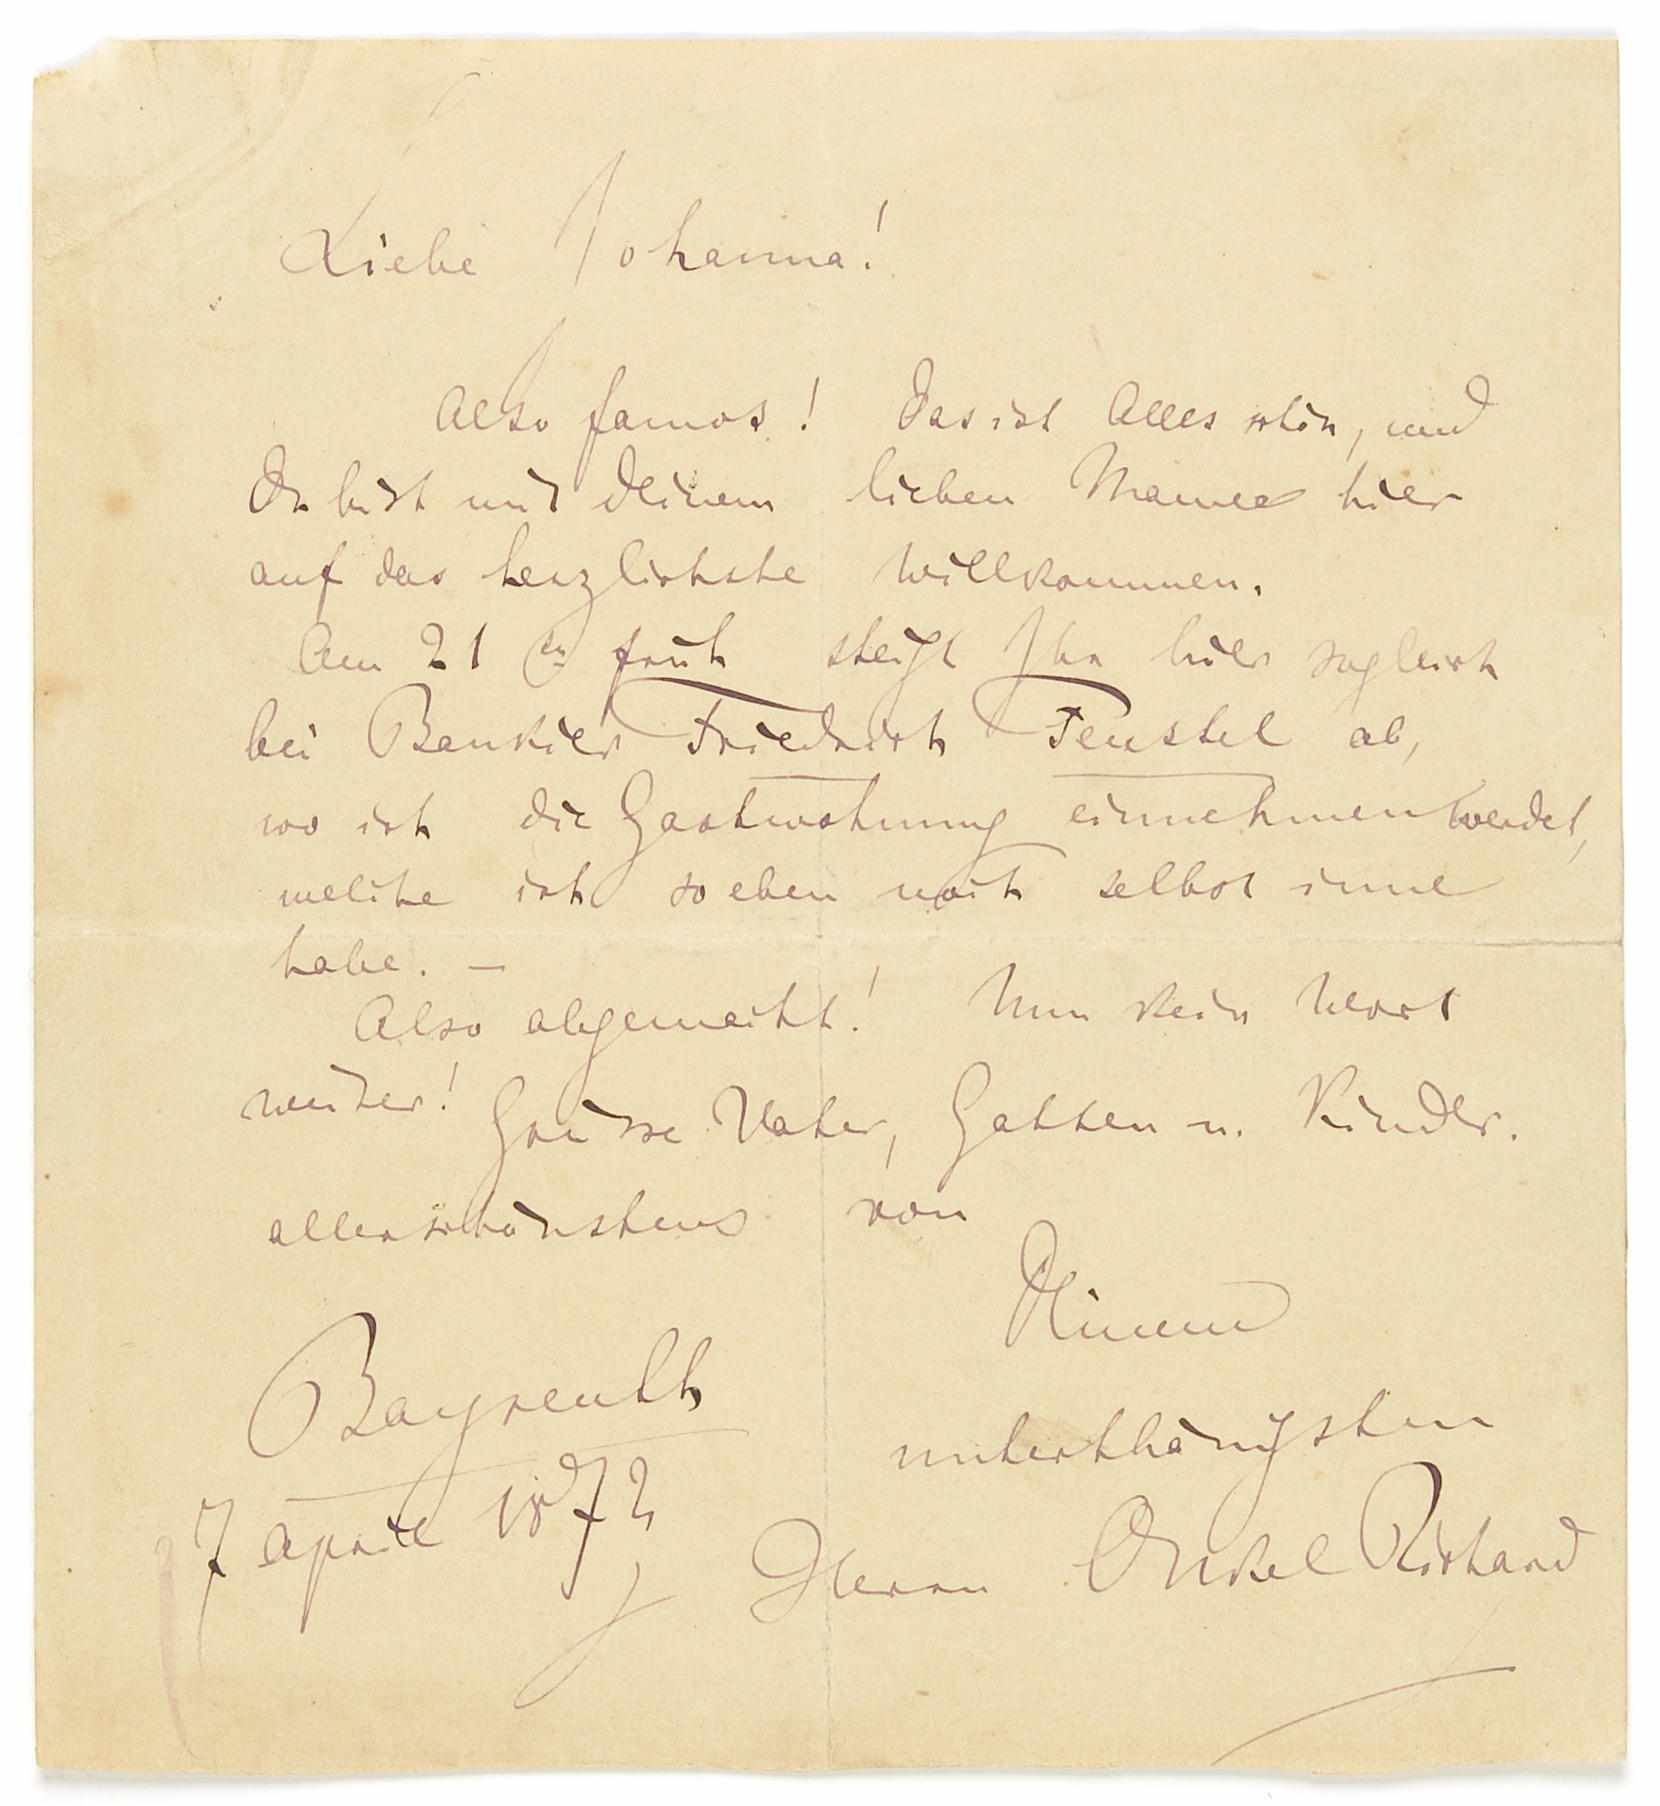 Liebe Johanna!
Also famos! Das ist Alles schön, und
Du bist mit Deinem lieben Manne hier
auf das herzlichste willkommen.
Am 21 en früh steigt Ihr hier sogleich
bei Bankier Friedrich Feustel ab,
wo ich die Gastwohnung einnehmen werdet,
welche ich so eben noch selbst inne
habe. –
Also abgemacht! Nun kein Wort
weiter! Grüsse Vater, Gatten u. Kinder.
allerschönstens von
Deinem
Bayreuth
unterthänigsten
7 April 1872
Herrn Onkel Richard